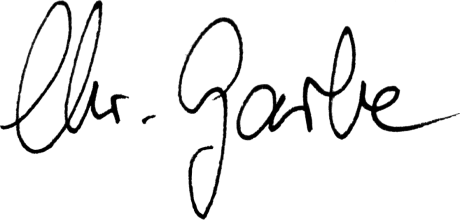 Chr. Garbe